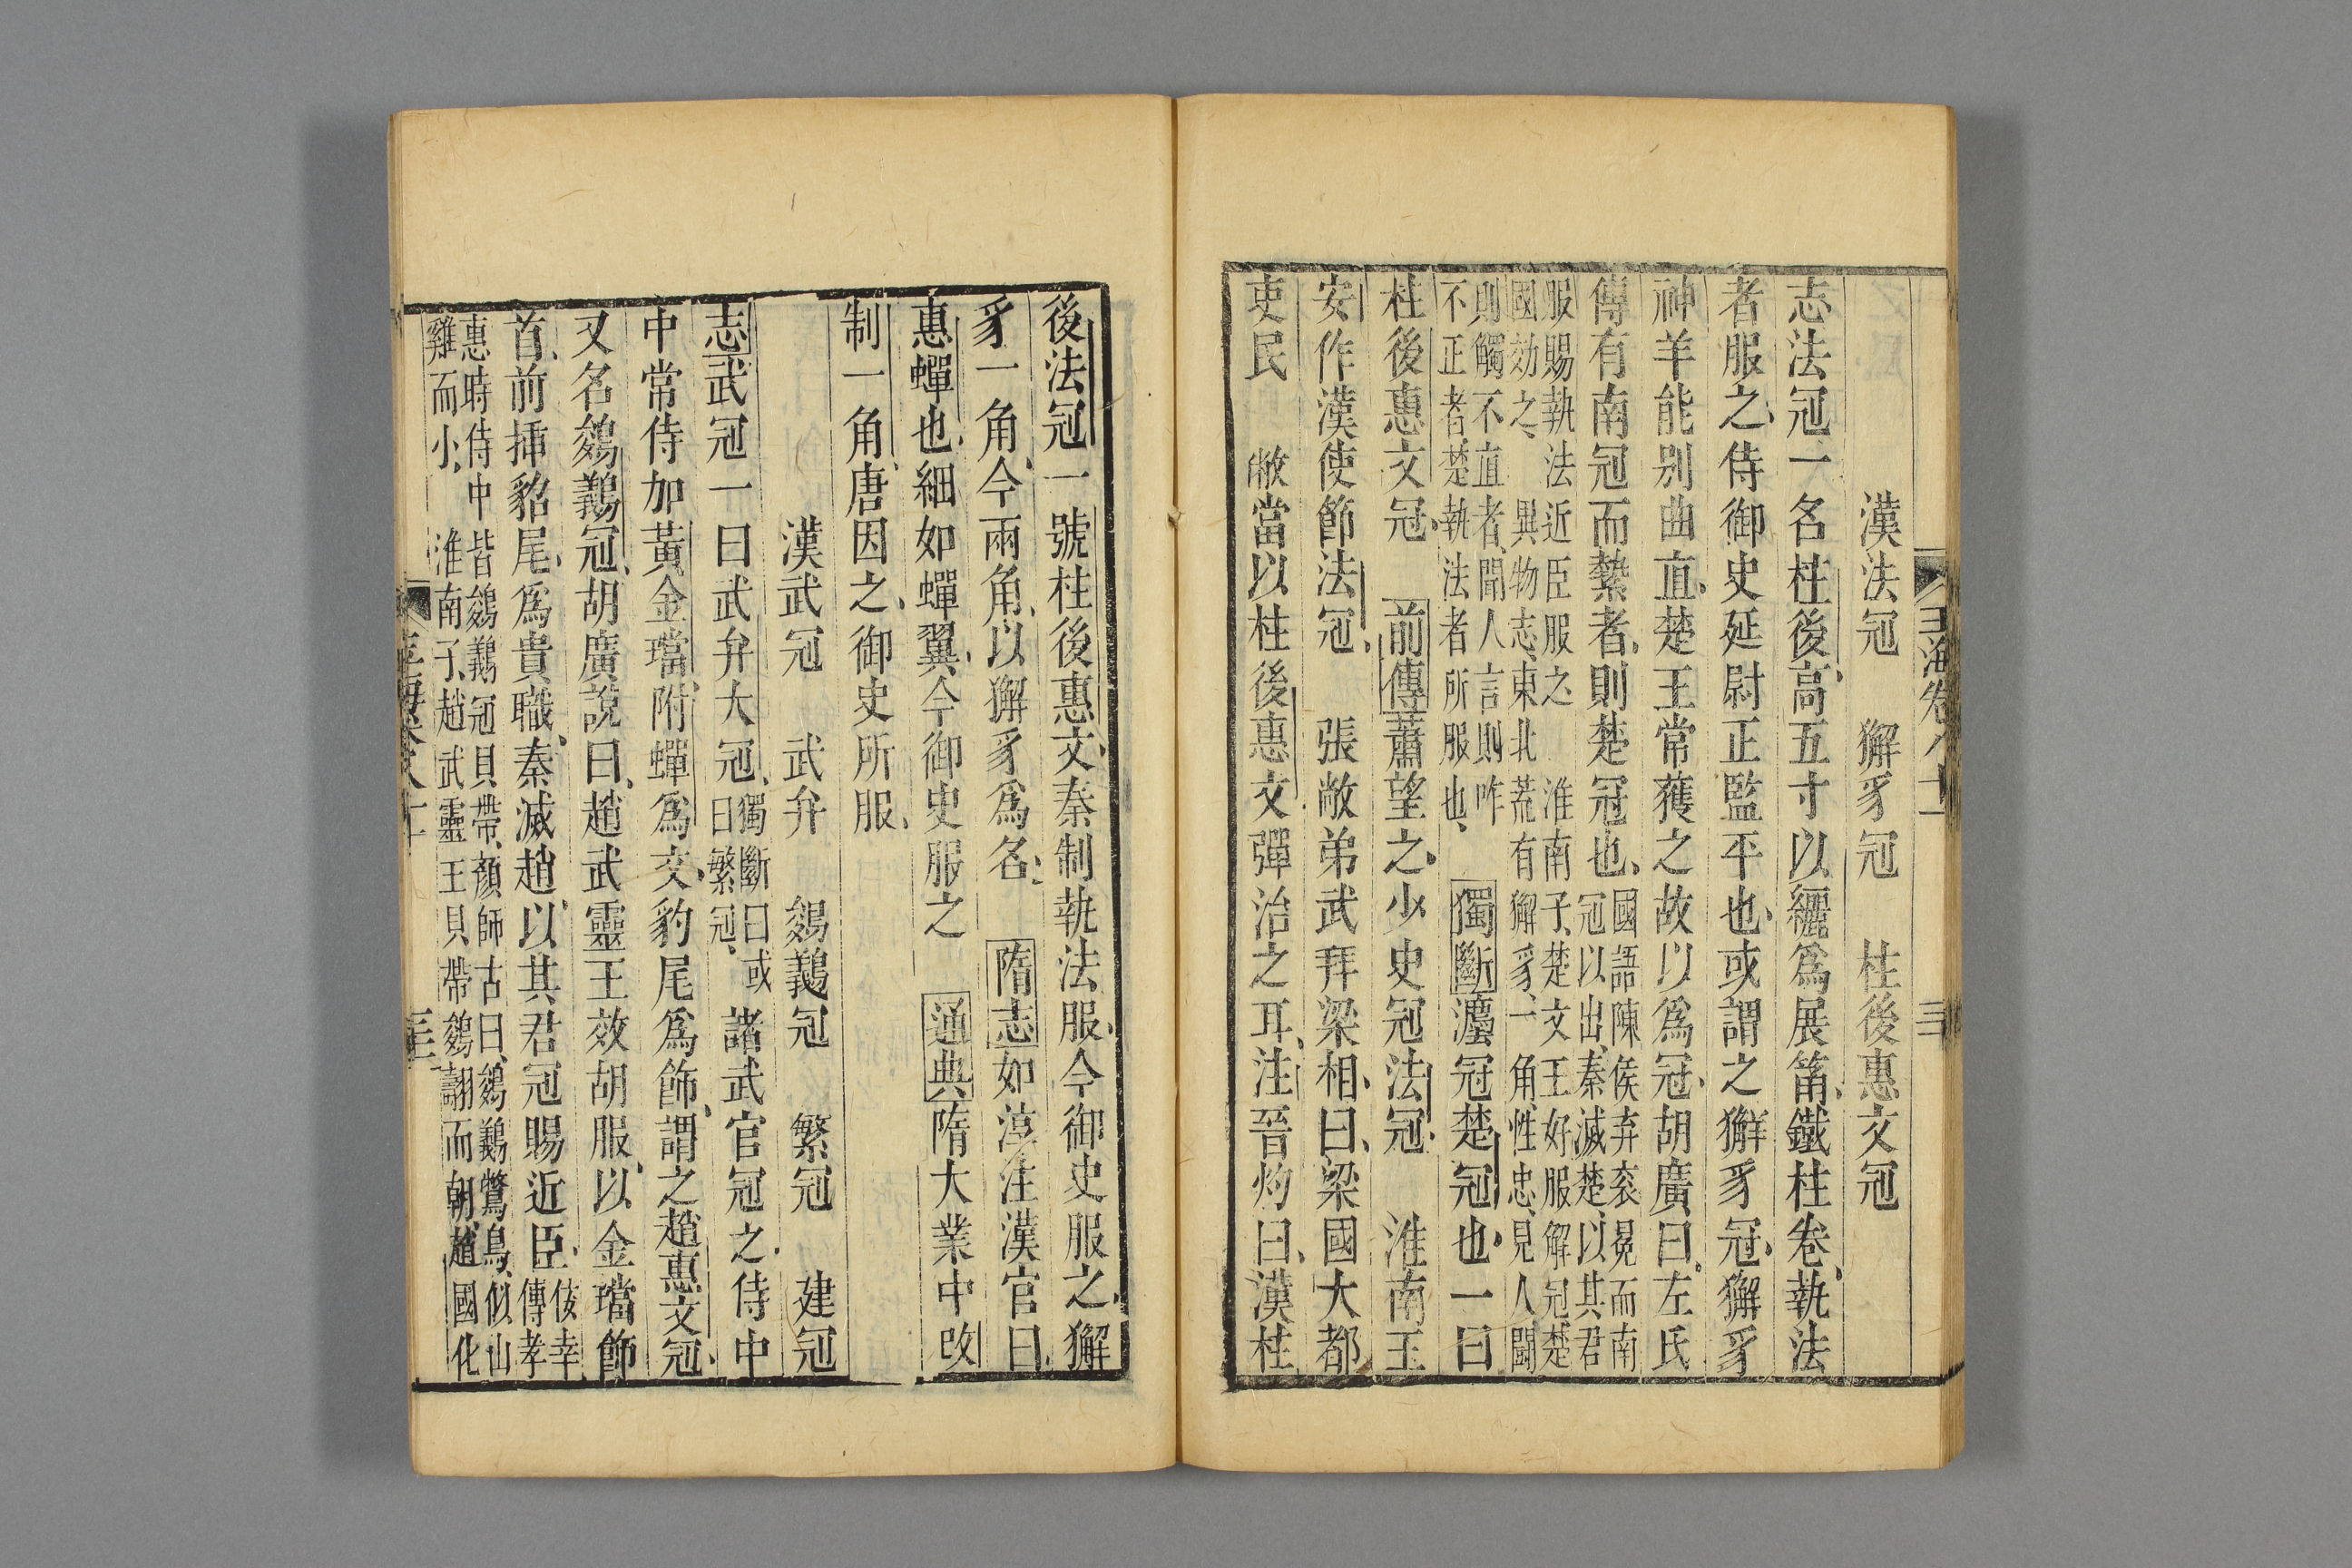 玉海卷八十一
漢法冠　獬豸冠　柱後惠文冠
志法冠一名柱後高五寸以纚爲展筩鐵柱卷執法
者服之侍御史延尉正監平也或謂之獬豸冠獬豸
神羊能别曲直楚王常獲之故以爲冠胡廣曰左氏
傳有南冠而縶者則楚冠也國語陳侯弃衮冕而南
冠以出秦滅楚以其君
服賜執法近臣服之　淮南子楚文王好服解冠楚
國効之　異物志東北荒有獬豸一角性忠見人鬬
則觸不直者聞人言則咋
不正者楚執法者所服也獨斷灋冠楚冠也一曰
柱後惠文冠　前傳蕭望之少史冠法冠　淮南王
安作漢使節法冠　張敞弟武拜梁相曰梁國大都
吏民　敝當以柱後惠文彈治之耳注晉灼曰漢柱
後法冠一號柱後惠文秦制執法服今御史服之獬
豸一角今兩角以獬豸爲名　隋志如淳注漢官曰
惠蟬也細如蟬翼今御史服之　通典隋大業中改
制一角唐因之御史所服
漢武冠　武弁　鵕鸃冠　繁冠　建冠
志武冠一曰武弁大冠獨斷曰或
曰繁冠諸武官冠之侍中
中常侍加黃金璫附蟬爲文豹尾爲飾謂之趙惠文冠
又名鵕鸃冠胡廣說曰趙武靈王效胡服以金璫飾
首前揷貂尾爲貴職秦滅趙以其君冠賜近臣佞幸
傳孝
惠時侍中皆鵕鸃冠貝帶顏師古曰鵕鸃鷩鳥似山
雞而小　淮南子趙武靈王貝帶鵕翿而朝趙國化